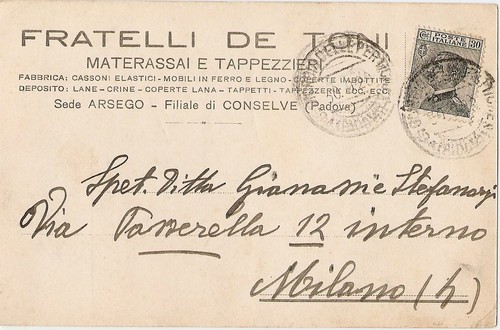 FRATELLI DE TONI
MATERASSAI E TAPPEZZIERI
FABBRICA: CASSONI ELASTICI - MOBILI IN FERRO E LEGNO - COPERTE IMBOTTITE
DEPOSITO: LANE - CRINE - COPERTE LANA - TAPPETTI - TAPPEZZERIE ECC. ECC.
Sede ARSEGO - Filiale di CONSELVE (Padova)
POSTE ITALIANE
30
Spet. Ditta
Via Tazzerella 12 interno
Milano